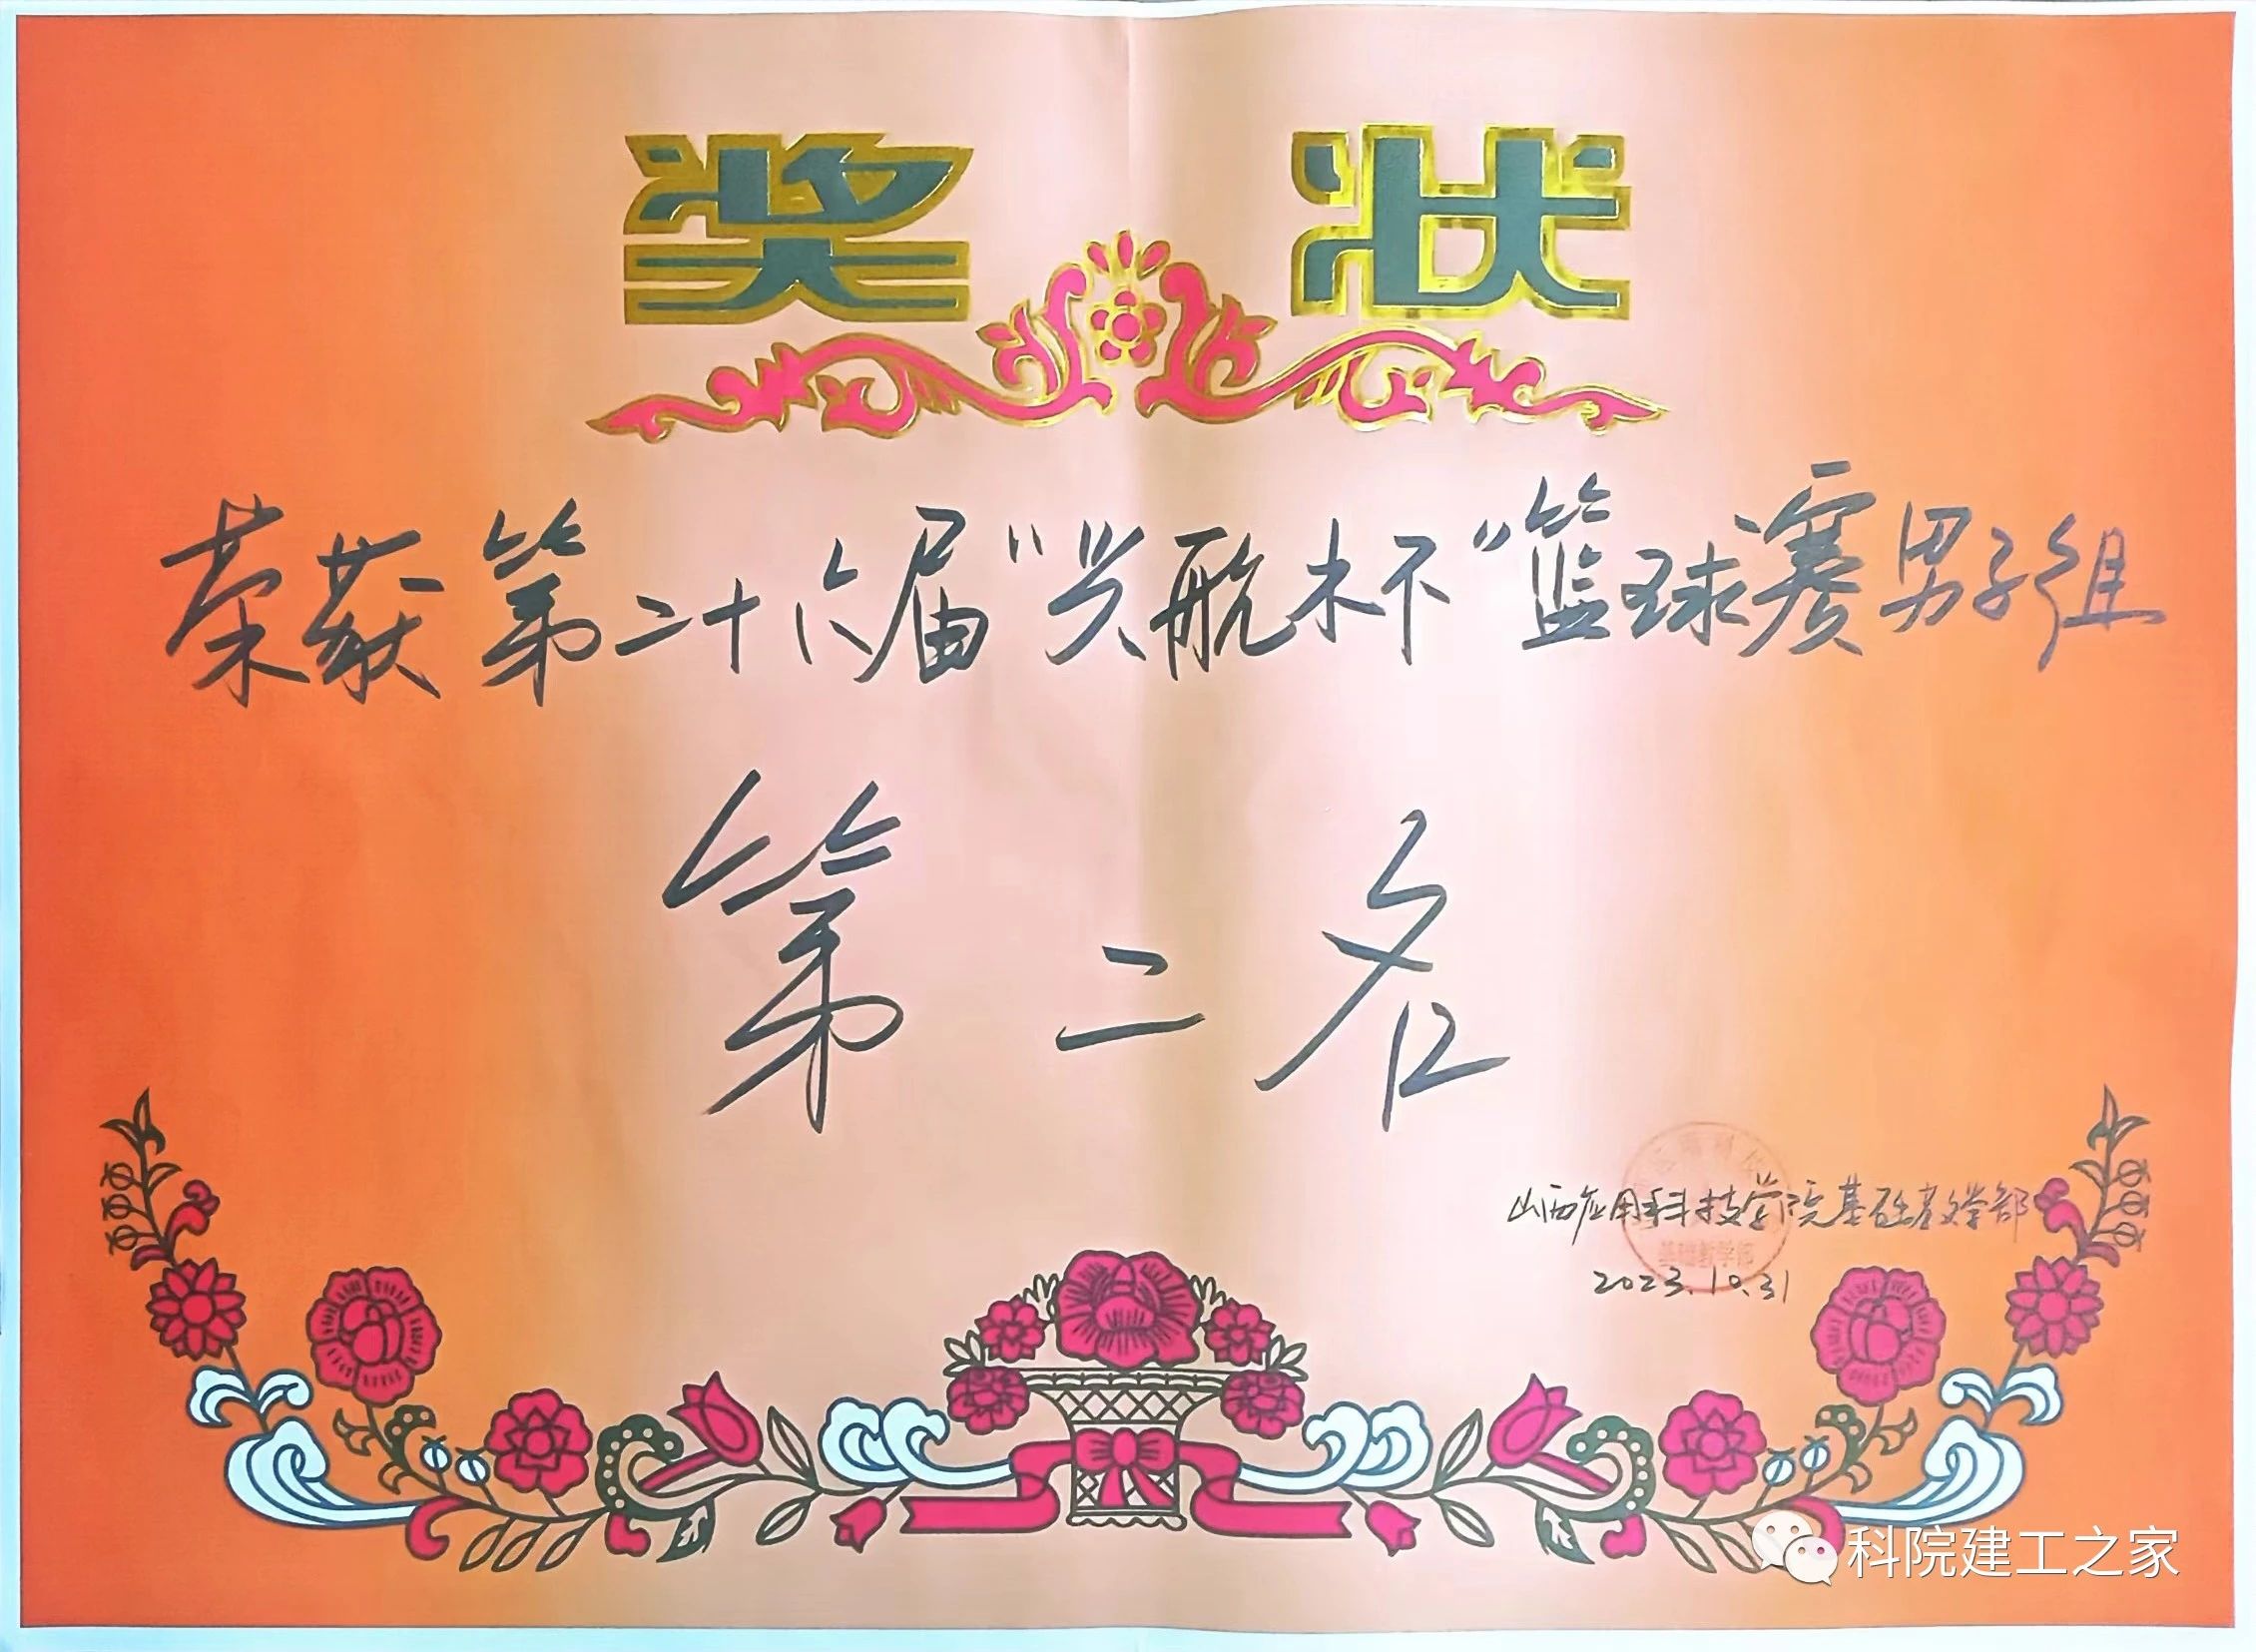 奖 状
荣获第二十六届"兴航杯"篮球赛男子组
第二名
山西应用科技学院基础教学部
基础教学部
2023.10.31
科院建工之家